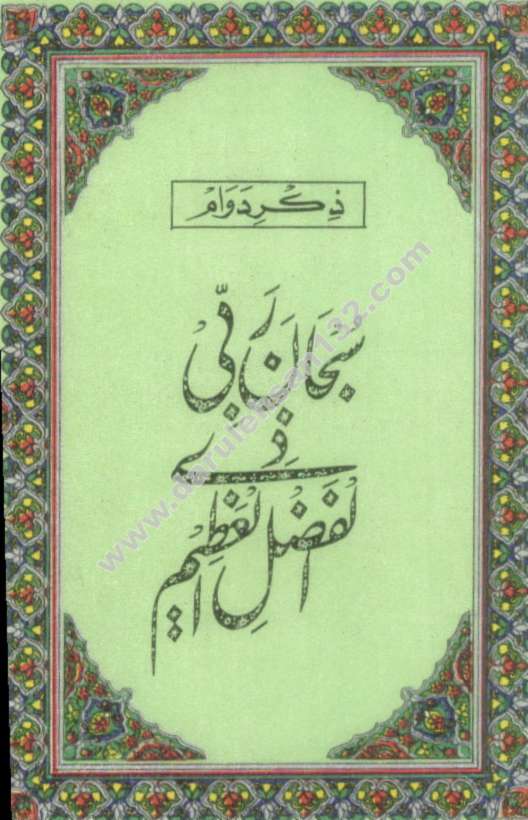 ذِکرِ دَوَام
سُبْحَانَ رَبِّیْ
ذِیْ
الْفَضْلِ الْعَظِیْمِ
www.darulehsan132.com